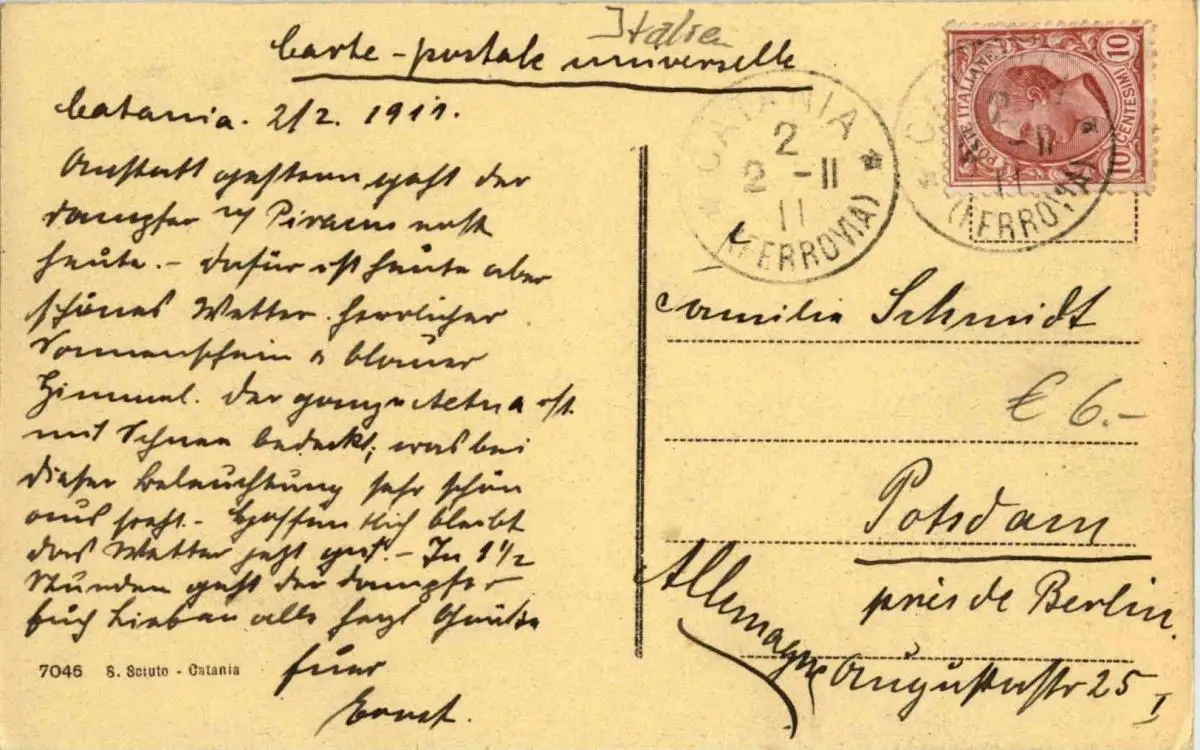 Italien
Carte-postale universelle
Catania. 2/2. 1911.
Anstatt gestern geht der
Dampfer n/ Piraeus erst
heute. - Dafür ist heute aber
schönes Wetter. Herrlicher
Sonnenschein & blauer
Himmel. Der ganze Aetna ist
mit Schnee bedeckt, was bei
dieser Beleuchtung sehr schön
aussieht. - Hoffentlich bleibt
das Wetter jetzt gut. - In 1 1/2
Stunden geht der Dampfer
Euch Lieben alle herzl Grüße
Euer
Ernst.
7046 S. Sciuto - Catania
POSTE ITALIANE
10 CENTESIMI 10
CATANIA
2
2 - 11
11
(FERROVIA)
2
- 11
11
(FERROVIA)
Familie Schmidt
€ 6.-
Potsdam
près de Berlin.
Allemagne
Augustastr 25 I